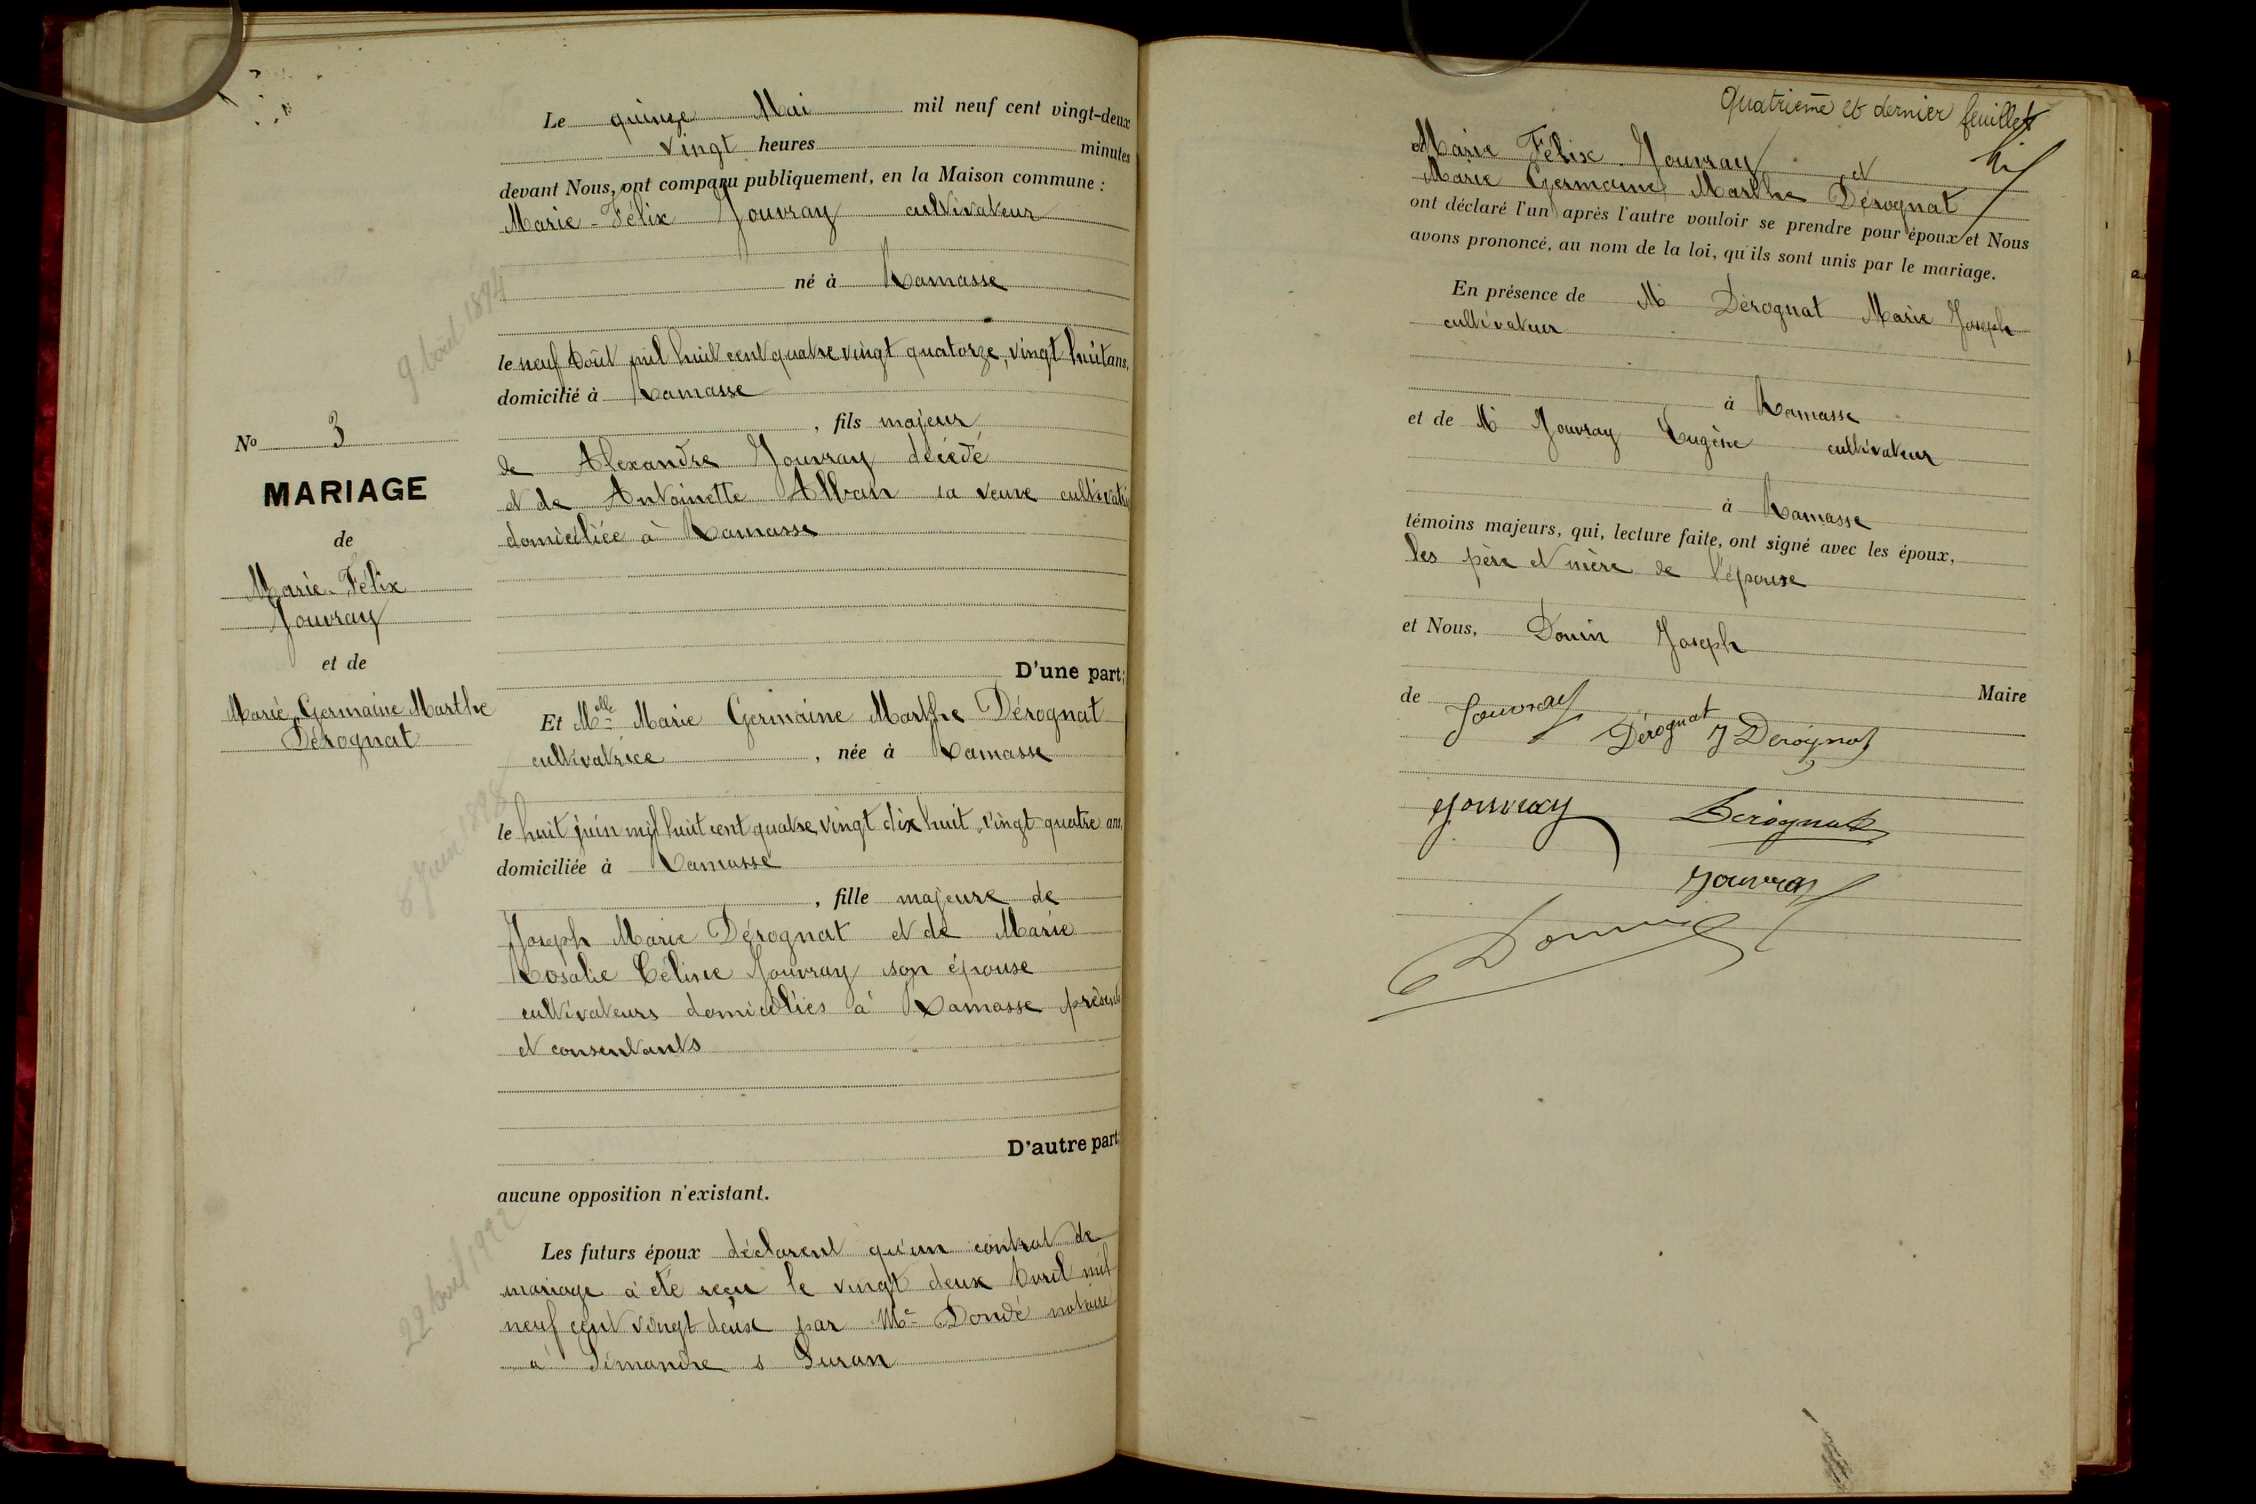 Le quinze Mai mil neuf cent vingt-deux
vingt heures minutes
devant Nous, ont comparu publiquement, en la Maison commune :
Marie-Félix Jouvray cultivateur
né à Ramasse
9 Aout 1894
le neuf Août mil huit cent quatre vingt quatorze, vingt huit ans,
domicilié à Ramasse
, fils majeur
de Alexandre Jouvray décédé
et de Antoinette Alban sa veuve cultivatrice
domiciliée à Ramasse
D'une part;
No 3
MARIAGE
de
Marie-Félix
Jouvray
et de
Marie Germaine Marthe
Dérognat
Et Melle Marie Germaine Marthe Dérognat
cultivatrice , née à Ramasse
8 Juin 1898
le huit juin mil huit cent quatre vingt dix huit, vingt quatre ans,
domiciliée à Ramasse
, fille majeure de
Joseph Marie Dérognat et de Marie
Rosalie Céline Jouvray son épouse
cultivateurs domiciliés à Ramasse présents
et consentants
D'autre part;
aucune opposition n'existant.
22 Avril 1922
Les futurs époux déclarent qu'un contrat de
mariage a été reçu le vingt deux Avril mil
neuf cent vingt-deux par Me Dondé notaire
à Simandre s Suran
Quatrième et dernier feuillet
Marie Félix Jouvray et
Marie Germaine Marthe Dérognat
ont déclaré l'un après l'autre vouloir se prendre pour époux et Nous
avons prononcé, au nom de la loi, qu'ils sont unis par le mariage.
En présence de M Dérognat Marie Joseph
cultivateur
à Ramasse
et de M Jouvray Eugène cultivateur
à Ramasse
témoins majeurs, qui, lecture faite, ont signé avec les époux,
les père et mère de l'épouse
et Nous, Douin Joseph
de Maire
Jouvray Dérognat J Dérognat
Jouvray Dérognat
Jouvray
Douin